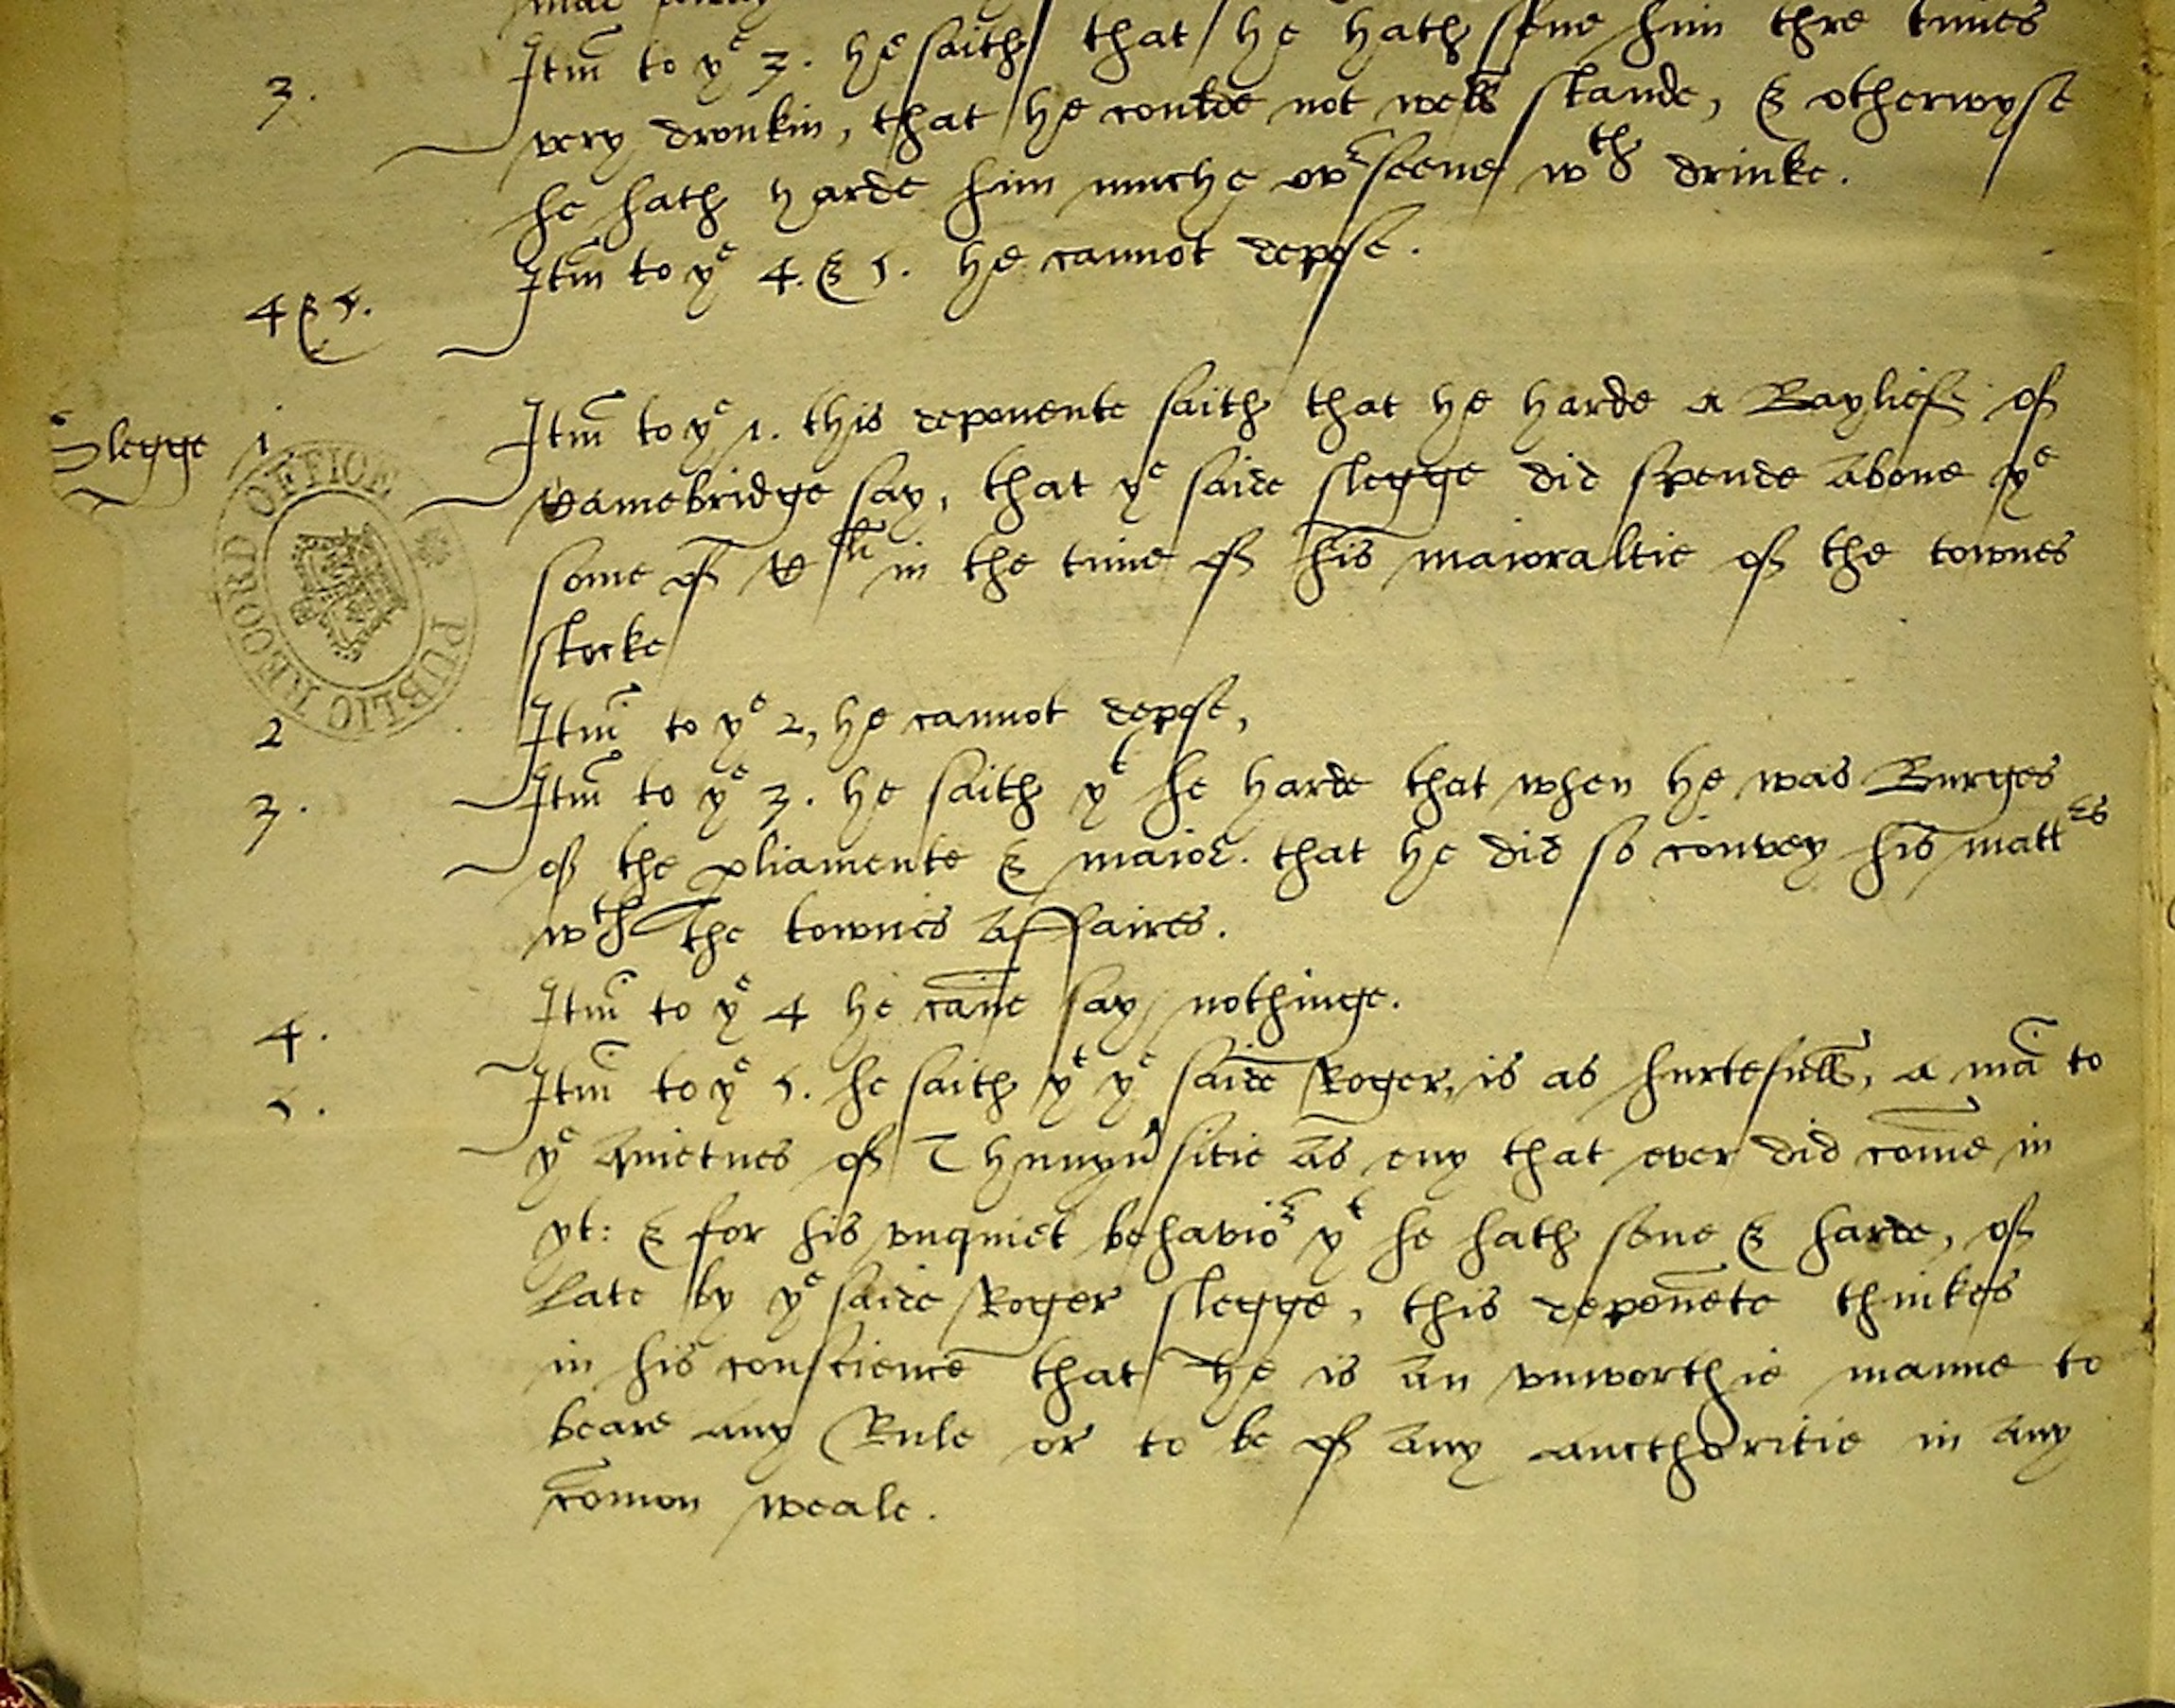 3. Itm̃ to yᵉ 3. he saith that he hath sene him thre times
very dronkin, that he coulde not well stande, & otherwyse
he hath harde him muche ovʳseene wᵗʰ drinke.
4 & 5. Itm̃ to yᵉ 4. & 5. he cannot depose.
Slegge 1 Itm̃ to yᵉ 1. this deponente saith that he harde a Bayliefe of
Camebridge say, that yᵉ saide slegge did spende above yᵉ
some of Cˡⁱ in the time of his maioraltie of the townes
stocke
2 Itm̃ to yᵉ 2, he cannot depose,
3. Itm̃ to yᵉ 3. he saith yᵗ he harde that when he was Burges
of the pliamente & maior. that he did so convey his mattᵉˢ
wᵗʰ the townes affaires.
4. Itm̃ to yᵉ 4 he cañe say nothinge.
5. Itm̃ to yᵉ 5. he saith yᵗ yᵉ saide Roger, is as hurtefull, a mã to
yᵉ Quietnes of Thunyùsitie as eny that ever did com̃e in
yt: & for his vnquiet behavioʳ yᵗ he hath sene & harde, of
late by yᵉ saide Roger slegge, this depon̄ete thinkes
in his conscience that he is an vnworthie manne to
beare any Rule or to be of any aucthoritie in any
com̃on weale.
PUBLIC RECORD OFFICE